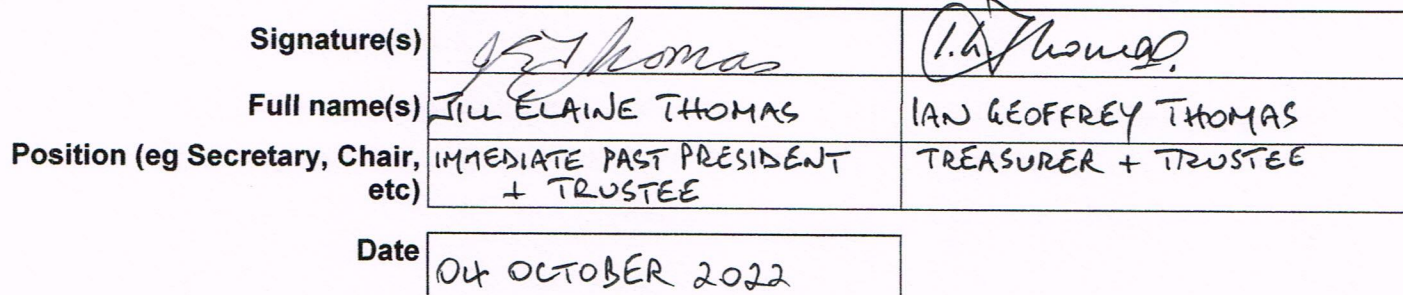 Signature(s) J E Thomas I.G. Thomas.
Full name(s) JILL ELAINE THOMAS IAN GEOFFREY THOMAS
Position (eg Secretary, Chair, IMMEDIATE PAST PRESIDENT TREASURER + TRUSTEE
etc) + TRUSTEE
Date 04 OCTOBER 2022